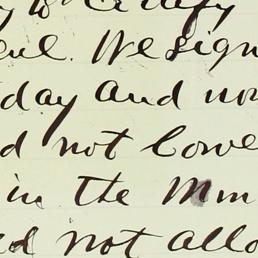 to Certify
We sign
day and
not Cove
in the Mm
not allo